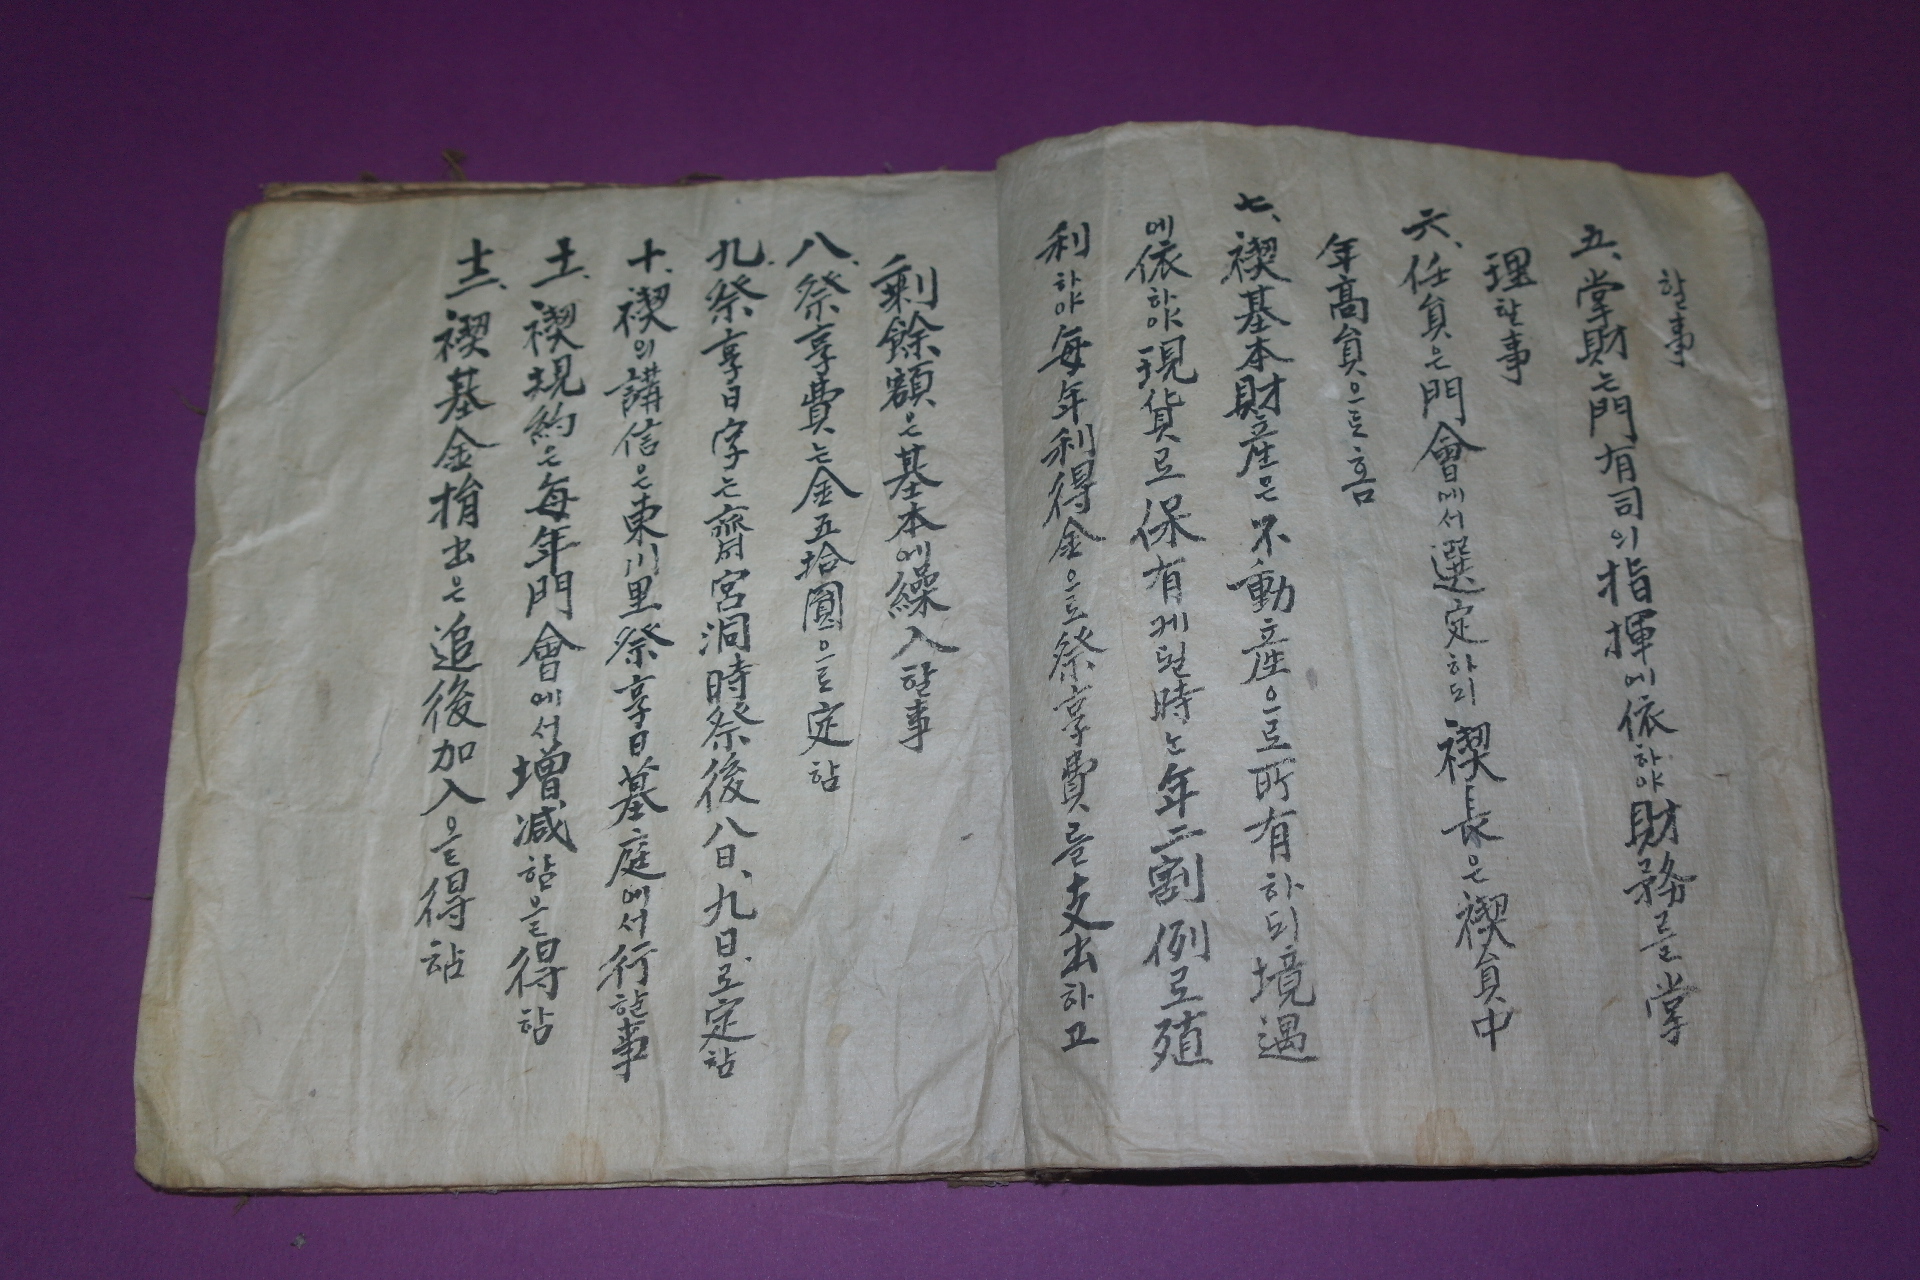 할事
五、掌財는門有司의指揮에依하야財務를掌
理할事
六、任員은門會에서選定하되禊長은禊員中
年高員으로홈
七、禊基本財産은不動産으로所有하되境遇
에依하야現貨로保有케될時는年二割例로殖
利하야每年利得金으로祭享費를支出하고
剩餘額은基本에繰入할事
八、祭享費는金五拾圓으로定함
九、祭享日字는齋宮洞時祭後八日、九日、로定함
十、禊의講信은東川里祭享日墓庭에서行할事
十一、禊規約은每年門會에서增减함을得함
十二、禊基金捐出은追後加入을得함